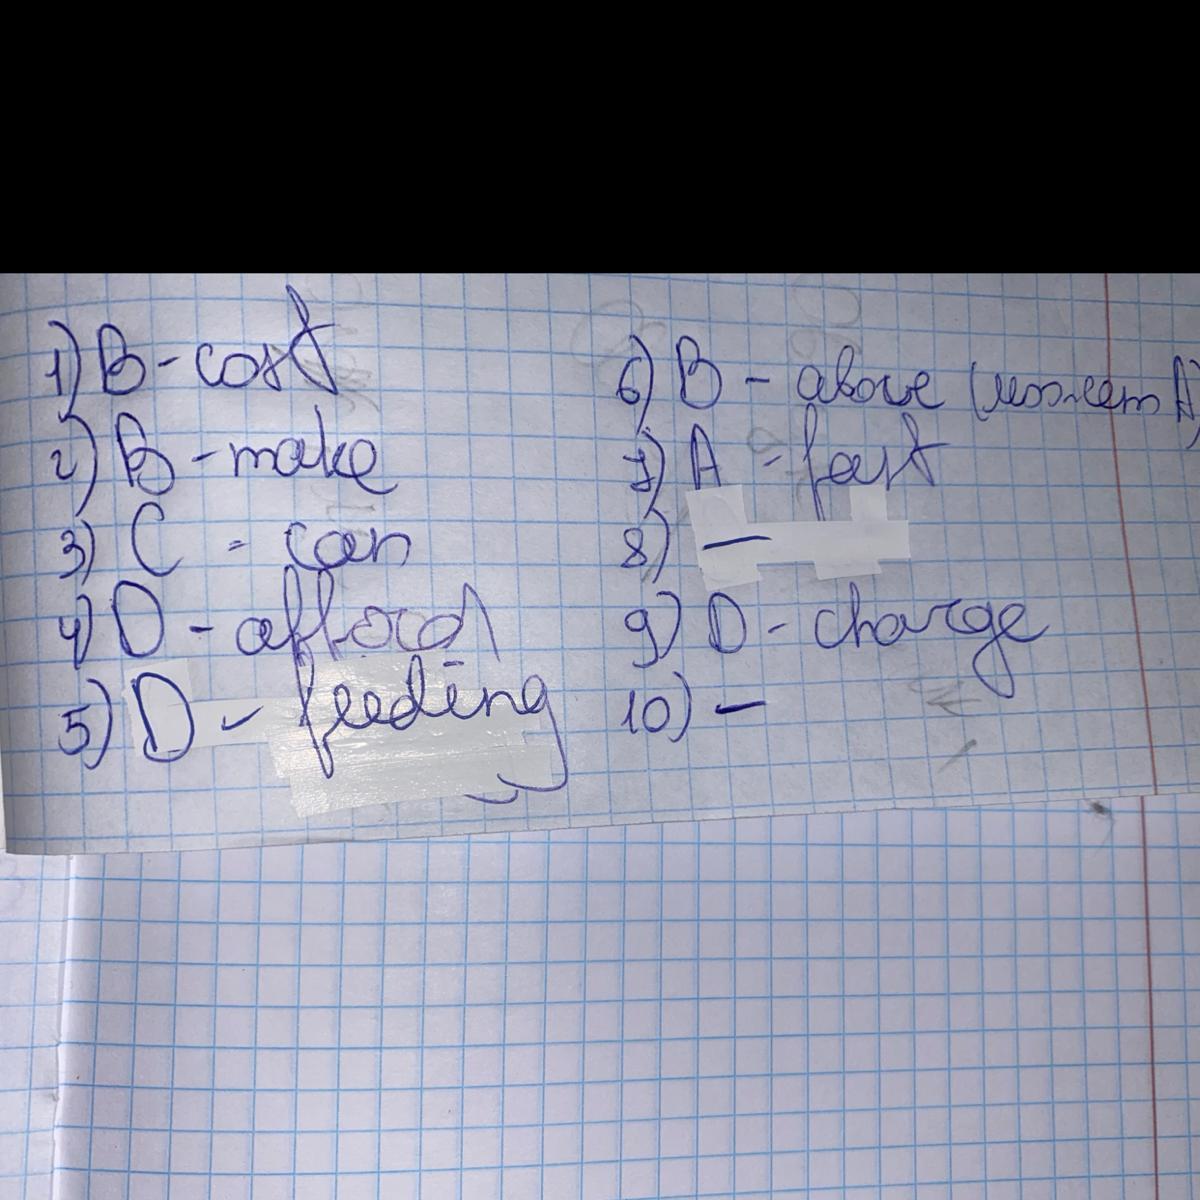 1) B - cost
2) B - make
3) C - can
4) D - afford
5) D - feeding
6) B - above (
7) A - fast
8) —
9) D - charge
10) —